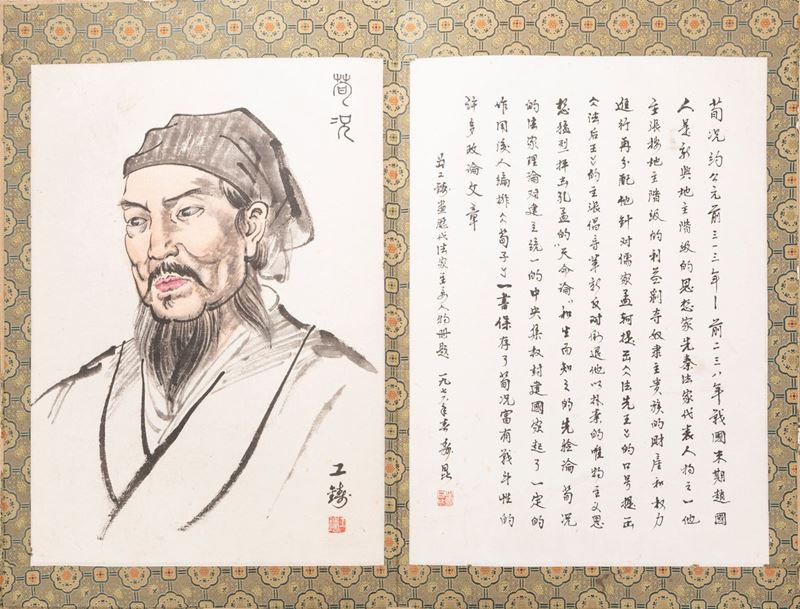 荀况
工鑄
荀况约公元前三一三年—前二三八年戰國末期趙國
人是新興地主階級的思想家先秦法家代表人物之一他
主張按地主階級的利益剥夺奴隶主貴族的财產和权力
進行再分配他針对儒家孟轲提出《法先王》的口号提出
《法后王》的主張倡导革新反对倒退他以朴素的唯物主义思
想猛烈抨击孔孟的“天命論”和生而知之的先验論荀况
的法家理論对建立統一的中央集权封建國家起了一定的
作用後人编排《荀子》一書保存了荀况富有戰斗性的
許多政論文章
工鑄畫歷代法家主要人物册题 一九七六年春